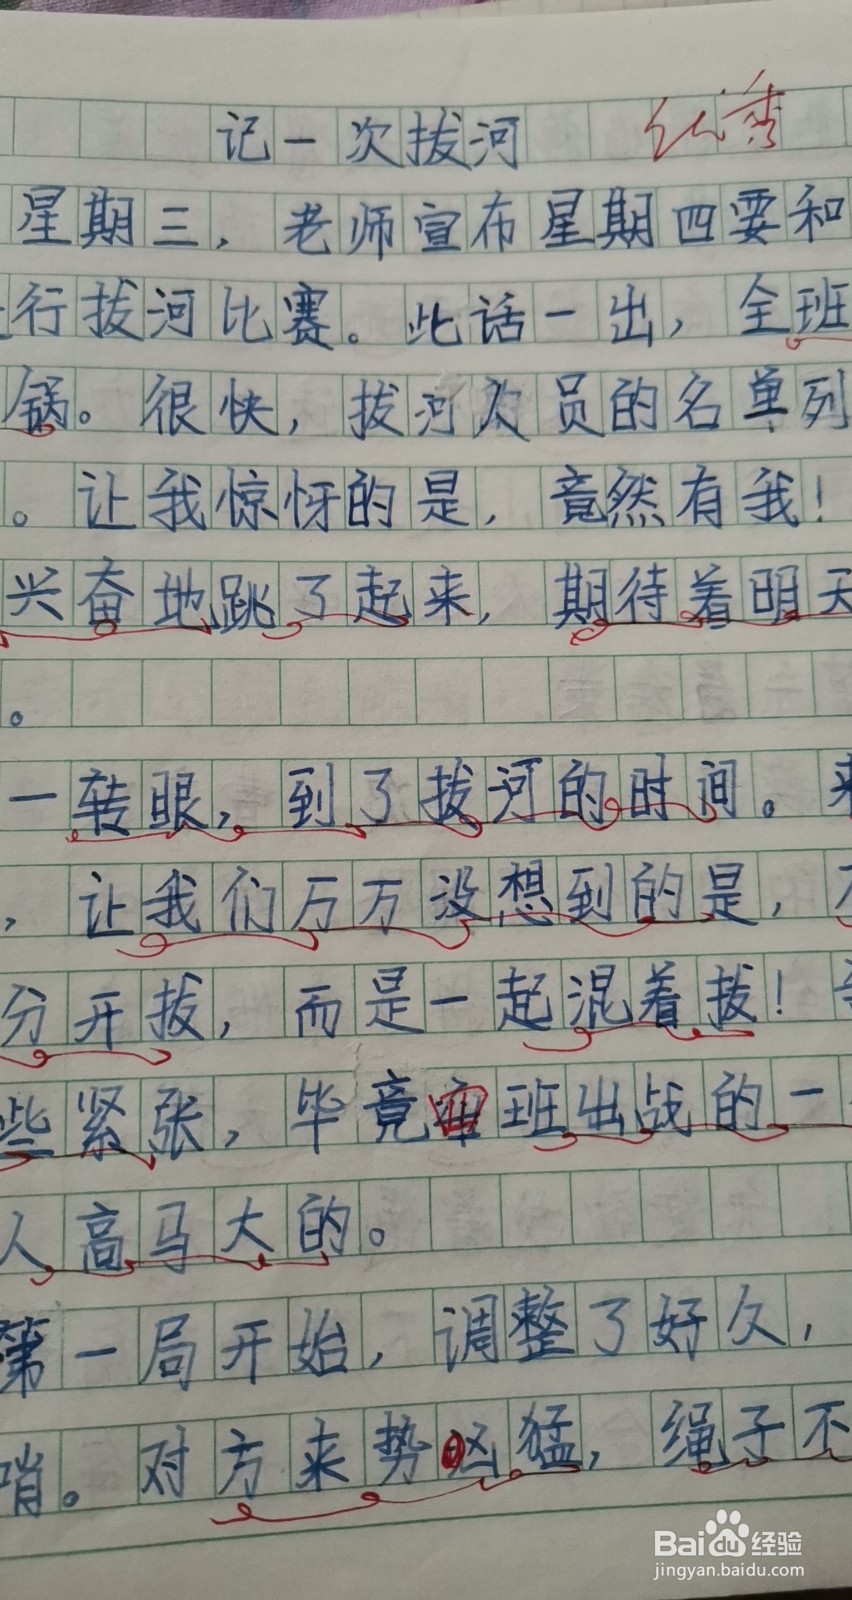 记一次拔河 优秀
星期三，老师宣布星期四要和
行拔河比赛。此话一出，全班
锅。很快，拔河人员的名单列
。让我惊讶的是，竟然有我！
兴奋地跳了起来，期待着明天
。
一转眼，到了拔河的时间。来
，让我们万万没想到的是，不
分开拔，而是一起混着拔！
些紧张，毕竟班出战的一
人高马大的。
第一局开始，调整了好久，
哨。对方来势凶猛，绳子不
Baidu经验
jingyan.baidu.com